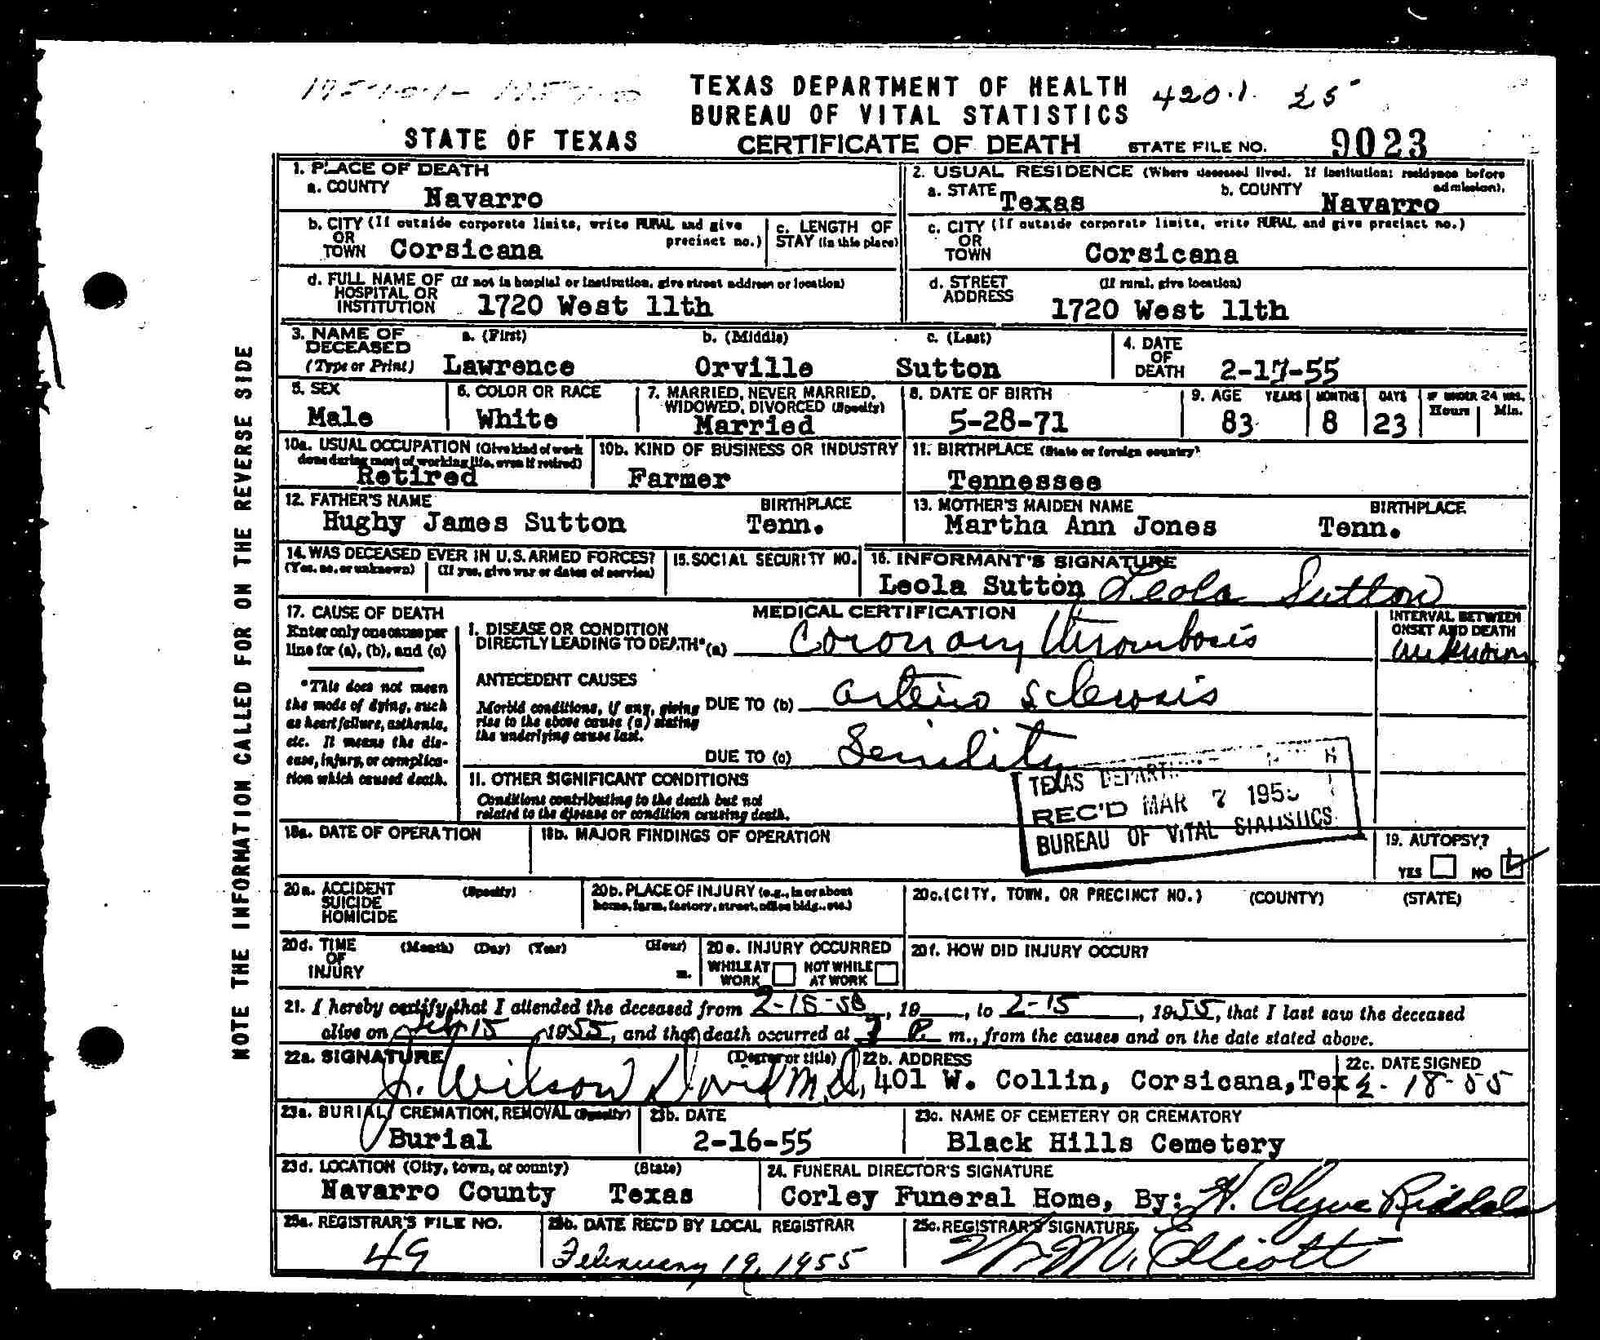 TEXAS DEPARTMENT OF HEALTH 420.1 25
BUREAU OF VITAL STATISTICS
STATE OF TEXAS CERTIFICATE OF DEATH STATE FILE NO. 9023
NOTE THE INFORMATION CALLED FOR ON THE REVERSE SIDE
1. PLACE OF DEATH
a. COUNTY Navarro
2. USUAL RESIDENCE (Where deceased lived. If institution: residence before admission).
a. STATE Texas b. COUNTY Navarro
b. CITY (If outside corporate limits, write RURAL and give precinct no.) OR TOWN Corsicana
c. LENGTH OF STAY (in this place)
c. CITY (If outside corporate limits, write RURAL and give precinct no.) OR TOWN Corsicana
d. FULL NAME OF HOSPITAL OR INSTITUTION (If not in hospital or institution, give street address or location) 1720 West 11th
d. STREET ADDRESS (If rural, give location) 1720 West 11th
3. NAME OF DECEASED (Type or Print) a. (First) b. (Middle) c. (Last)
Lawrence Orville Sutton
4. DATE OF DEATH 2-17-55
5. SEX Male
6. COLOR OR RACE White
7. MARRIED, NEVER MARRIED, WIDOWED, DIVORCED (Specify) Married
8. DATE OF BIRTH 5-28-71
9. AGE YEARS 83 MONTHS 8 DAYS 23 IF UNDER 24 HRS. Hours Min.
10a. USUAL OCCUPATION (Give kind of work done during most of working life, even if retired) Retired
10b. KIND OF BUSINESS OR INDUSTRY Farmer
11. BIRTHPLACE (State or foreign country) Tennessee
12. FATHER'S NAME BIRTHPLACE
Hughy James Sutton Tenn.
13. MOTHER'S MAIDEN NAME BIRTHPLACE
Martha Ann Jones Tenn.
14. WAS DECEASED EVER IN U.S. ARMED FORCES? (Yes, no, or unknown) (If yes, give war or dates of service)
15. SOCIAL SECURITY NO.
16. INFORMANT'S SIGNATURE
Leola Sutton Leola Sutton
17. CAUSE OF DEATH
Enter only one cause per line for (a), (b), and (c)
*This does not mean the mode of dying, such as heart failure, asthenia, etc. It means the disease, injury, or complication which caused death.
MEDICAL CERTIFICATION
INTERVAL BETWEEN ONSET AND DEATH
I. DISEASE OR CONDITION DIRECTLY LEADING TO DEATH* (a) Coronary thrombosis unknown
ANTECEDENT CAUSES
Morbid conditions, if any, giving rise to the above cause (a) stating the underlying cause last.
DUE TO (b) arterio sclerosis
DUE TO (c) Senility
II. OTHER SIGNIFICANT CONDITIONS
Conditions contributing to the death but not related to the disease or condition causing death.
TEXAS
REC'D MAR 7 195
BUREAU OF VITAL STATISTICS
18a. DATE OF OPERATION
18b. MAJOR FINDINGS OF OPERATION
19. AUTOPSY?
YES NO
20a. ACCIDENT SUICIDE HOMICIDE (Specify)
20b. PLACE OF INJURY (e.g., in or about home, farm, factory, street, office bldg., etc.)
20c. (CITY, TOWN, OR PRECINCT NO.) (COUNTY) (STATE)
20d. TIME OF INJURY (Month) (Day) (Year) (Hour) m.
20e. INJURY OCCURRED
WHILE AT WORK NOT WHILE AT WORK
20f. HOW DID INJURY OCCUR?
21. I hereby certify that I attended the deceased from 2-15-55, 19, to 2-15, 1955, that I last saw the deceased
alive on Feb 15 1955, and that death occurred at 7 P. m., from the causes and on the date stated above.
22a. SIGNATURE (Degree or title)
J. Wilson David M.D.
22b. ADDRESS
401 W. Collin, Corsicana, Tex
22c. DATE SIGNED
2-18-55
23a. BURIAL, CREMATION, REMOVAL (Specify) Burial
23b. DATE 2-16-55
23c. NAME OF CEMETERY OR CREMATORY Black Hills Cemetery
23d. LOCATION (City, town, or county) (State)
Navarro County Texas
24. FUNERAL DIRECTOR'S SIGNATURE
Corley Funeral Home, By: H. Clyve
25a. REGISTRAR'S FILE NO. 49
25b. DATE REC'D BY LOCAL REGISTRAR February 19, 1955
25c. REGISTRAR'S SIGNATURE M. Elliott